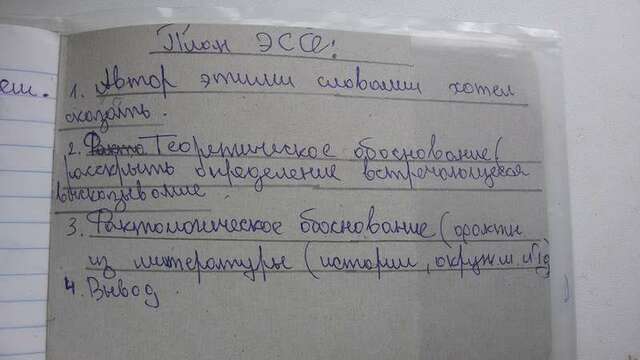 ем.
План ЭССЕ:
1. Автор этими словами хотел
сказать.
2. Теоретическое обоснование (
расскрыть определение встречающиеся
высказывание.
3. Фактологическое боснование (факты
из литературы (истории, окружм.
4. Вывод.